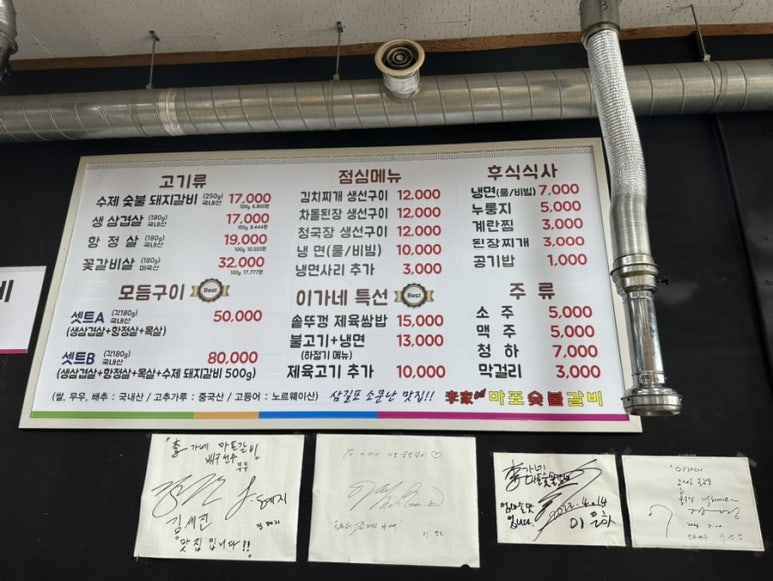 고기류
수제 숯불 돼지갈비 (250g) 국내산 17,000
100g 6,800원
생 삼겹살 (180g) 국내산 17,000
100g 9,444원
항 정 살 (180g) 국내산 19,000
100g 10,555원
꽃갈비살 (180g) 미국산 32,000
100g 17,777원
모듬구이 Best
셋트A (각180g) 국내산 50,000
(생삼겹살+항정살+목살)
셋트B (각180g) 국내산 80,000
(생삼겹살+항정살+목살+수제 돼지갈비 500g)
점심메뉴
김치찌개 생선구이 12,000
차돌된장 생선구이 12,000
청국장 생선구이 12,000
냉 면(물/비빔) 10,000
냉면사리 추가 3,000
이가네 특선 Best
솥뚜껑 제육쌈밥 15,000
불고기+냉면 13,000
(하절기 메뉴)
제육고기 추가 10,000
후식식사
냉면(물/비빔) 7,000
누룽지 5,000
계란찜 3,000
된장찌개 3,000
공기밥 1,000
주 류
소 주 5,000
맥 주 5,000
청 하 7,000
막걸리 3,000
(쌀, 무우, 배추 : 국내산 / 고추가루 : 중국산 / 고등어 : 노르웨이산) 삼길포 소문난 맛집!! 李家네 마포 숯불갈비
비
李가네 마포갈비
배구선수
부부
김세진
맛집 입니다!!
李가네
마포숯불갈비
입니다.
이 윤하